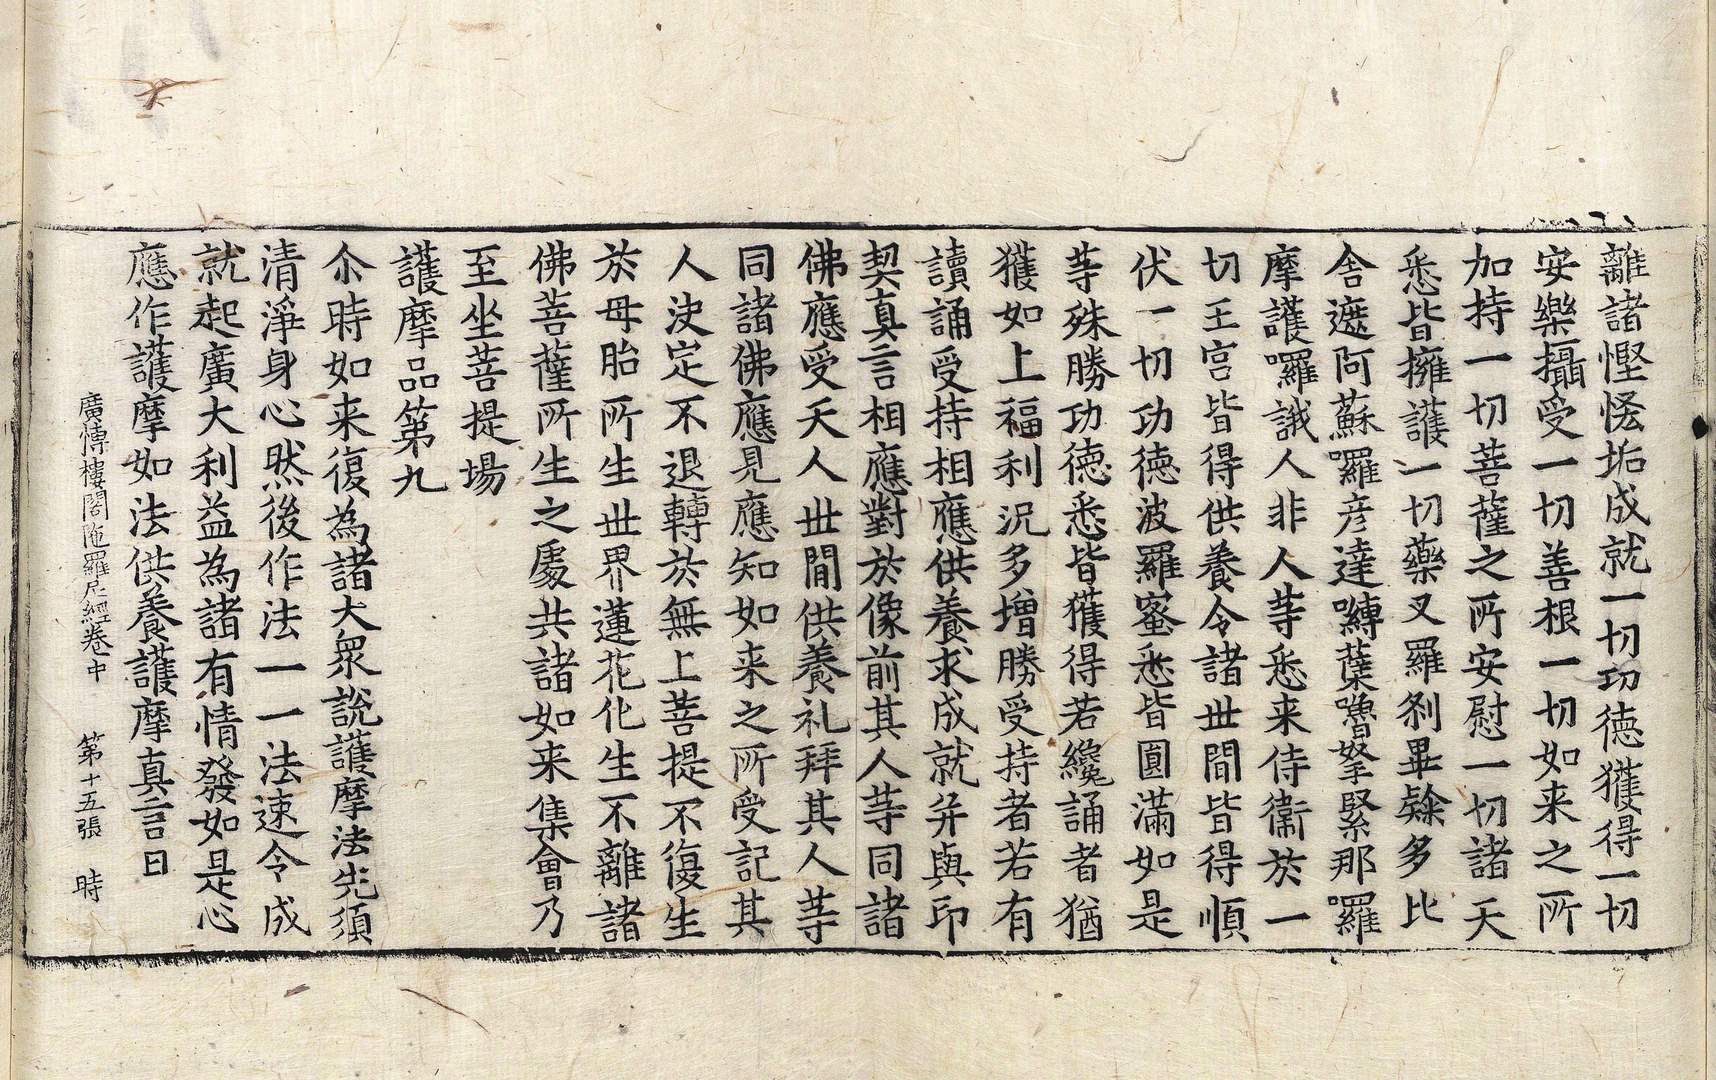 離諸慳恡垢成就一切功德獲得一切
安樂攝受一切善根一切如来之所
加持一切菩薩之所安慰一切諸天
悉皆擁護一切藥叉羅刹畢䟽多比
舍遮阿蘇囉彦達嚩蘖嚕拏緊那羅
摩護囉誐人非人䓁悉来侍衞扵一
切王宫皆得供養令諸丗間皆得順
伏一切功德波羅蜜悉皆圓滿如是
䓁殊勝功德悉皆獲得若纔誦者猶
獲如上福利况多增勝受持者若有
讀誦受持相應供養求成就并與印
契真言相應對扵像前其人䓁同諸
佛應受天人丗間供養礼拜其人䓁
同諸佛應見應知如来之所受記其
人決定不退轉扵無上菩提不復生
扵母胎所生丗界蓮花化生不離諸
佛菩薩所生之處共諸如来集會乃
至坐菩提場
護摩品第九
尒時如来復為諸大衆說護摩法先須
清淨身心然後作法一一法速令成
就起廣大利益為諸有情發如是心
應作護摩如法供養護摩真言曰
廣慱樓閣陁羅尼經卷中　第十五張　時